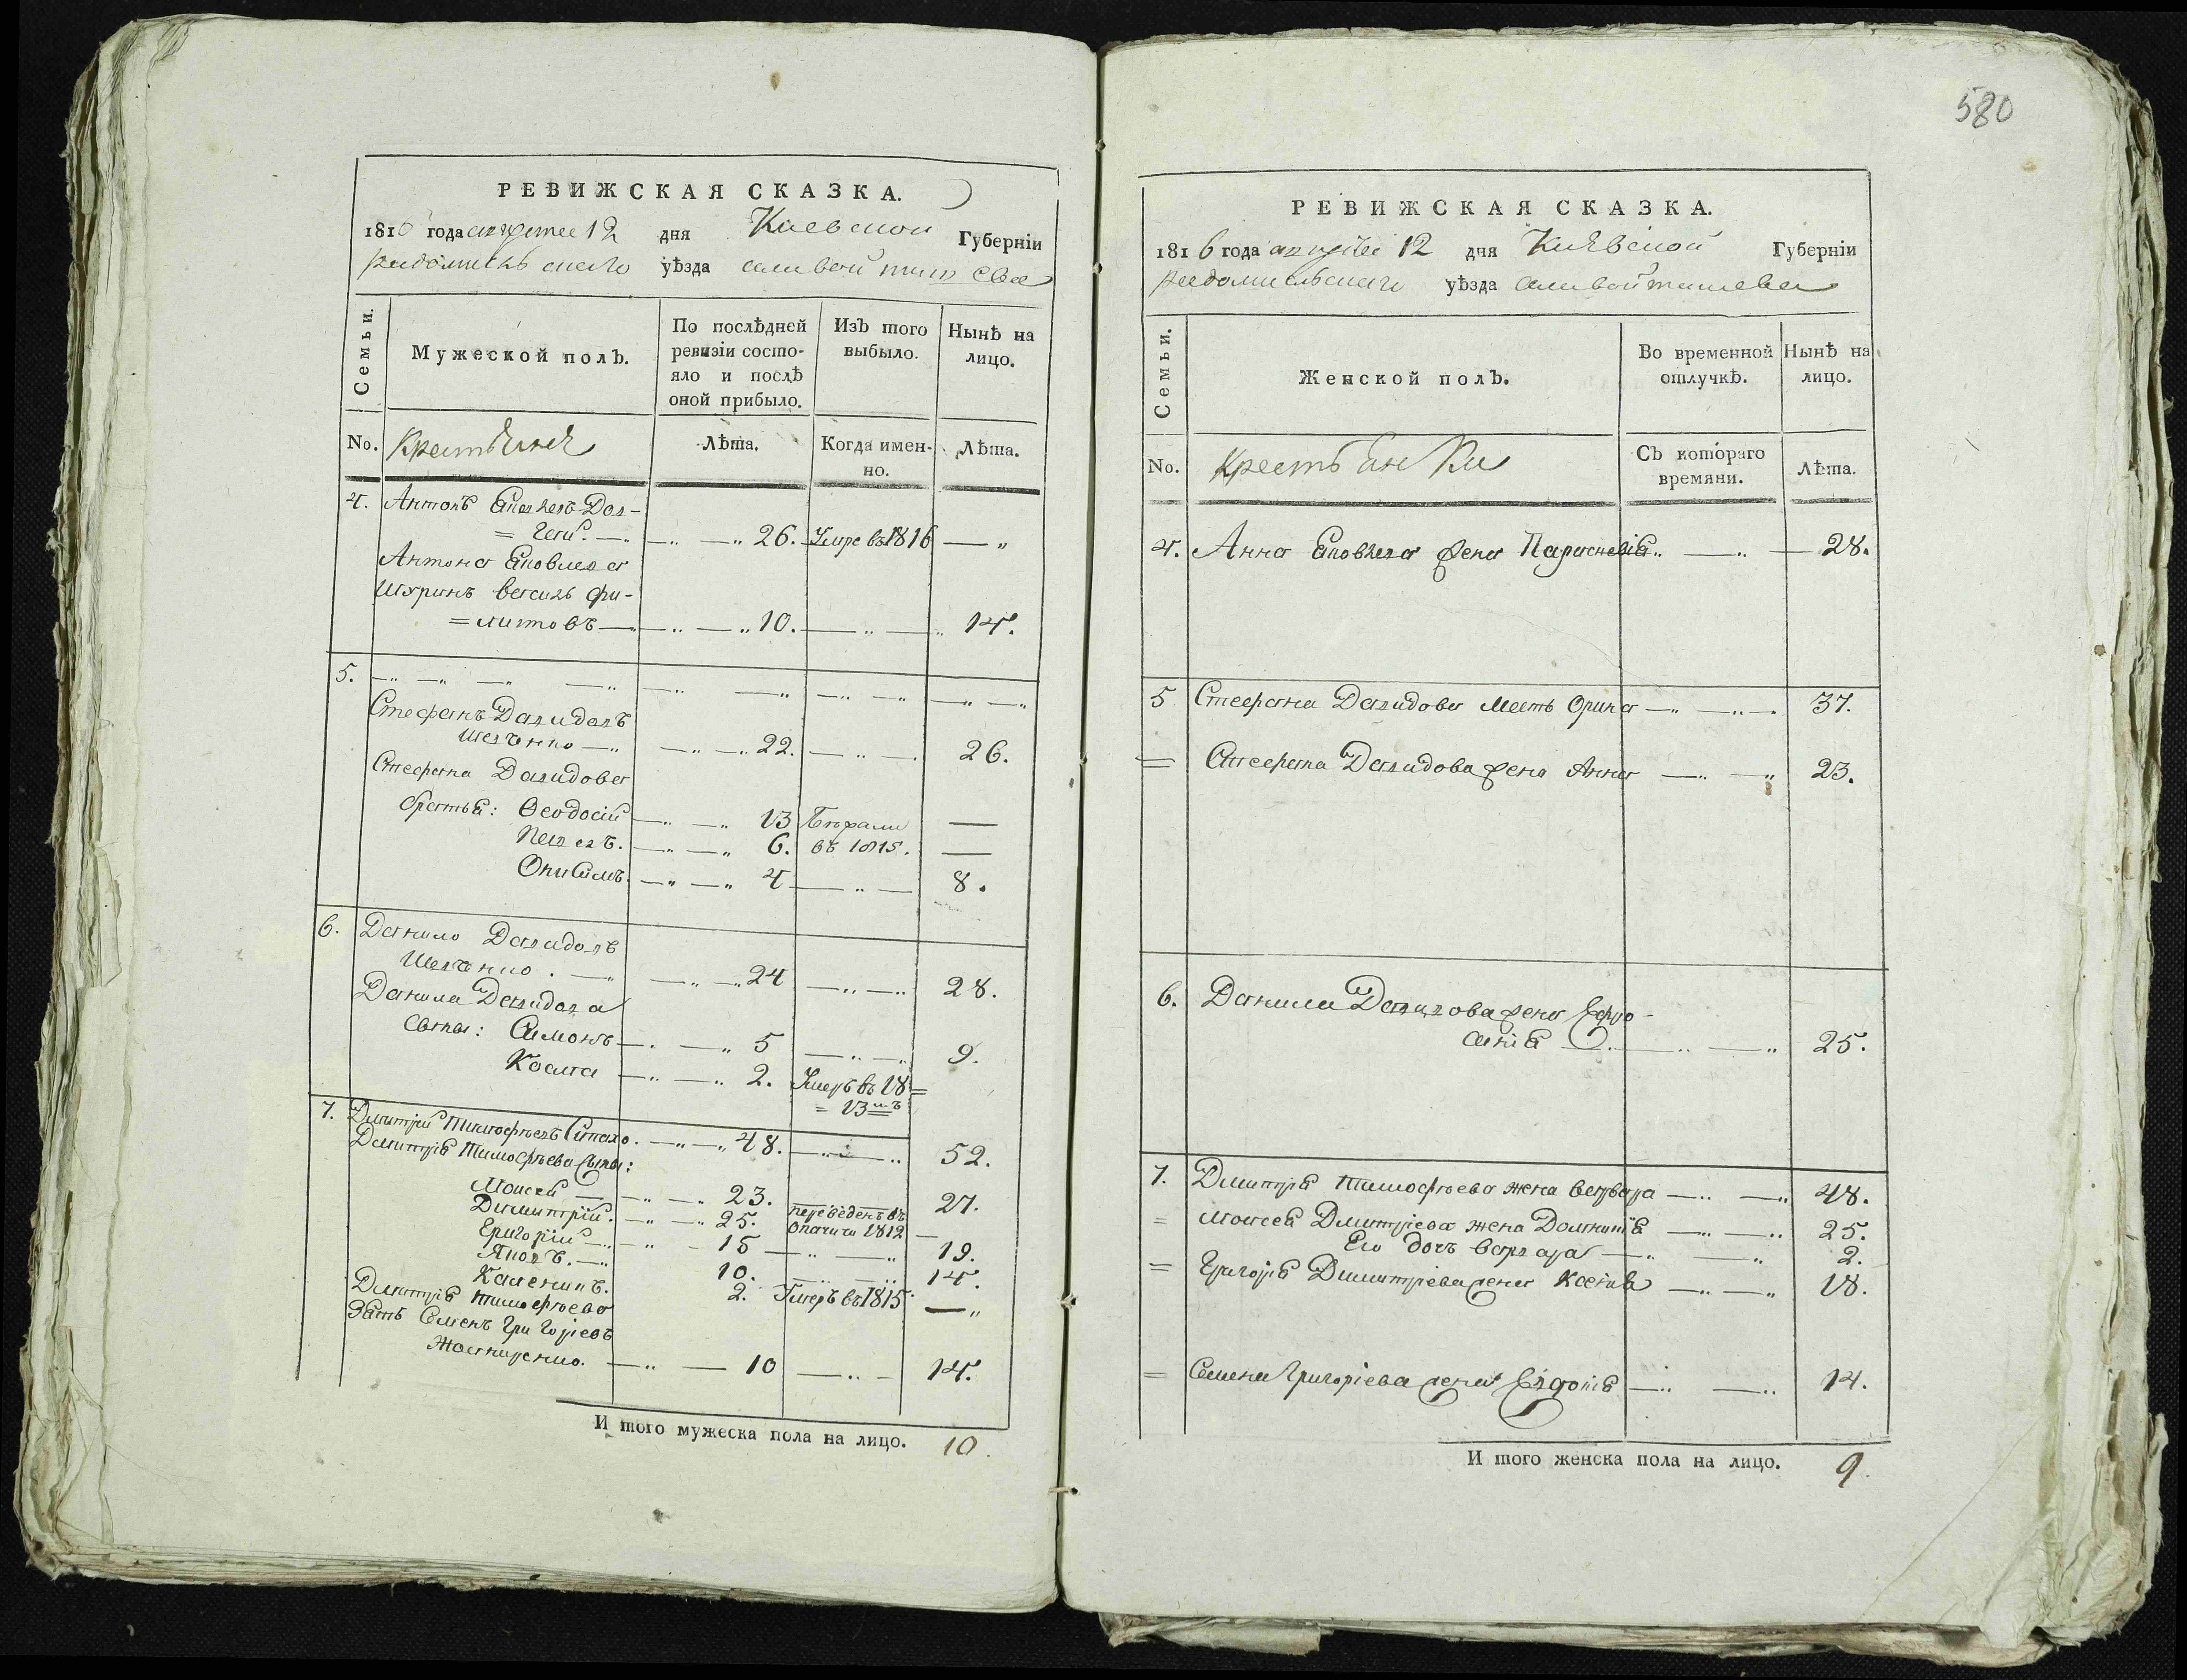 580
РЕВИЖСКАЯ СКАЗКА.
1816 года августа 12 дня Киевской Губерніи
радомысльскаго уѣзда
Семьи.
Мужеской полъ.
По послѣдней ревизіи состояло и послѣ оной прибыло.
Изъ того выбыло.
Нынѣ на лицо.
No. Крестьяне
Лѣта.
Когда именно.
Лѣта.
4. Антонъ
26. Умре въ 1816 — „
Антона Яковлева
Шуринъ василь фи-
=литовъ — 10. — 14.
5.
Стефанъ Давидовъ
Шевченко — 22. — 26.
Стефана Давидова
братья: Ѳеодосій — 13 —
Павелъ. — 6. въ 1815. —
— 4 — 8.
6. Данило Давидовъ
Шевченко. — 24 — 28.
Данила Давидова
Сыны: Симонъ — 5 — 9.
Косма — 2. Умеръ въ 18=
= 13мъ
7. Дмитрій Тимофѣевъ — 48. — 52.
Дмитрія Тимофѣева сыны:
Моисей — 23. — 27.
Димитрій. — 25. переведенъ въ
1812 —
Григорій — 15 — 19.
Яковъ. — 10. — 14.
2. Умеръ въ 1815 — „
Дмитрія Тимофѣева
Зять Семенъ Григоріевъ
— 10 — 14.
И того мужеска пола на лицо. 10.
РЕВИЖСКАЯ СКАЗКА.
1816 года августа 12 дня Кіевской Губерніи
радомысльскаго уѣзда
Семьи.
Женской полъ.
Во временной отлучкѣ.
Нынѣ на лицо.
No. Крестьянки
Съ котораго времяни.
Лѣта.
4. Яковлева жена Парасковія — 28.
5 Стефана Давидова мать Орина — 37.
= Стефана Давидова жена Анна — 23.
6. Данила Давидова жена Ефро-
синія — 25.
7. Дмитрія Тимофѣева жена варвара — 48.
= Моисея Дмитріева жена Домникія — 25.
Его дочь варвара — 2.
= Григорія Димитріева жена Ксенія — 18.
= Семена Григоріева жена Евдокія — 14.
И того женска пола на лицо. 9.